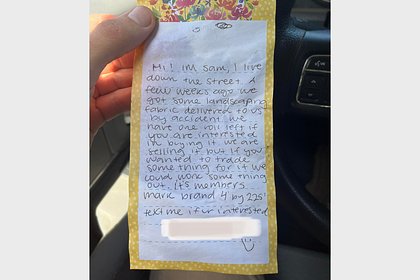 Hi! im sam, I live
down the street. A
few weeks ago we
got some landscaping
fabric delivered to us
by accident. we
have one roll left if
you are interested
in buying it. we are
selling it but if you
wanted to trade
something for it we
could work something
out. It's members
mark brand 4 by 225'
text me if ur interested